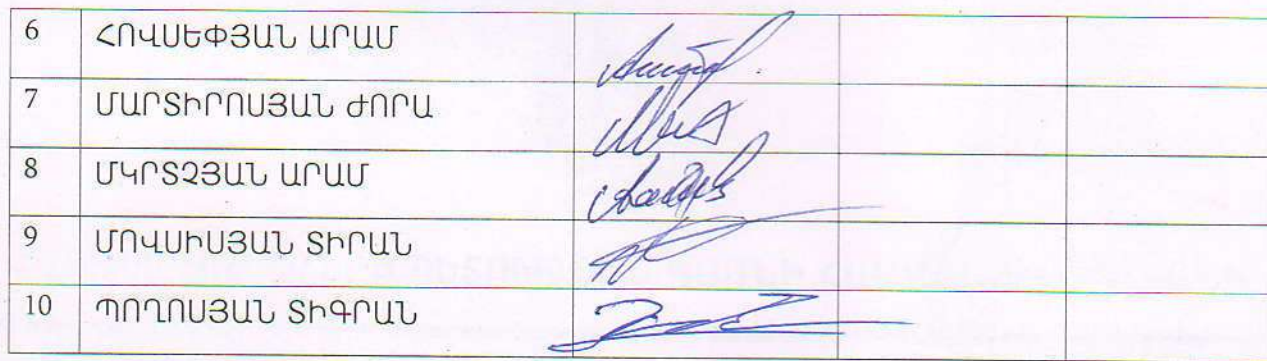 6 ՀՈՎՍԵՓՅԱՆ ԱՐԱՄ
7 ՄԱՐՏԻՐՈՍՅԱՆ ԺՈՐԱ
8 ՄԿՐՏՉՅԱՆ ԱՐԱՄ
9 ՄՈՎՍԻՍՅԱՆ ՏԻՐԱՆ
10 ՊՈՂՈՍՅԱՆ ՏԻԳՐԱՆ